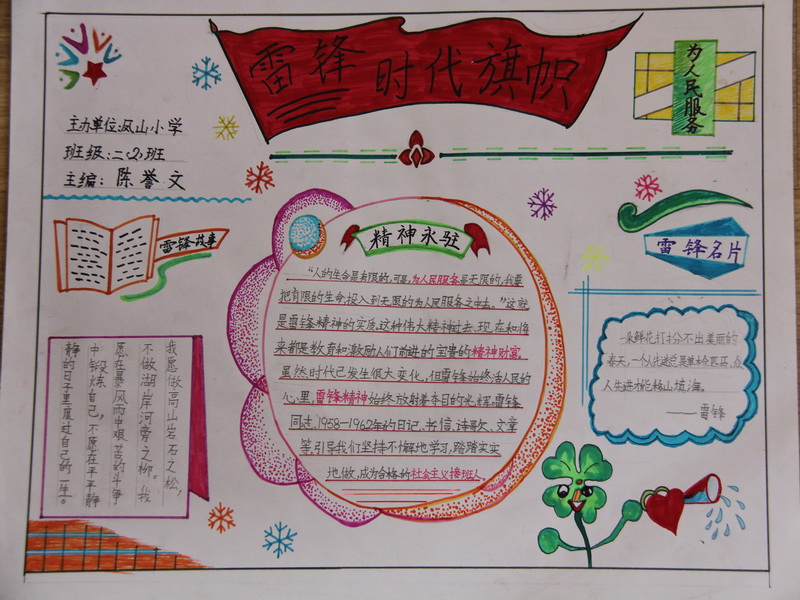 雷锋时代旗帜
为人民服务
主办单位:凤山小学
班级:二·2)班
主编:陈誉文
雷锋故事
精神永驻
雷锋名片
“人的生命是有限的,可是,为人民服务是无限的,我要
把有限的生命投入到无限的为人民服务之中去。”这就
是雷锋精神的实质。这种伟大精神过去、现在和将
来都是教育和激励人们前进的宝贵的精神财富。
虽然时代已发生很大变化,但雷锋始终活人民的
心里,雷锋精神始终放射着夺目的光辉。雷锋
同志,1958—1962年的日记、书信、诗歌、文章
等,引导我们坚持不懈地学习,踏踏实实
地做,成为合格的社会主义接班人。
我愿做高山岩石之松,
不做湖岸河旁之柳。我
愿在暴风雨中艰苦的斗争
中锻炼自己,不愿在平平静
静的日子里度过自己的一生。
一朵鲜花打扮不出美丽的
春天,一个人先进总是单
人先进才能移山填海。
——雷锋